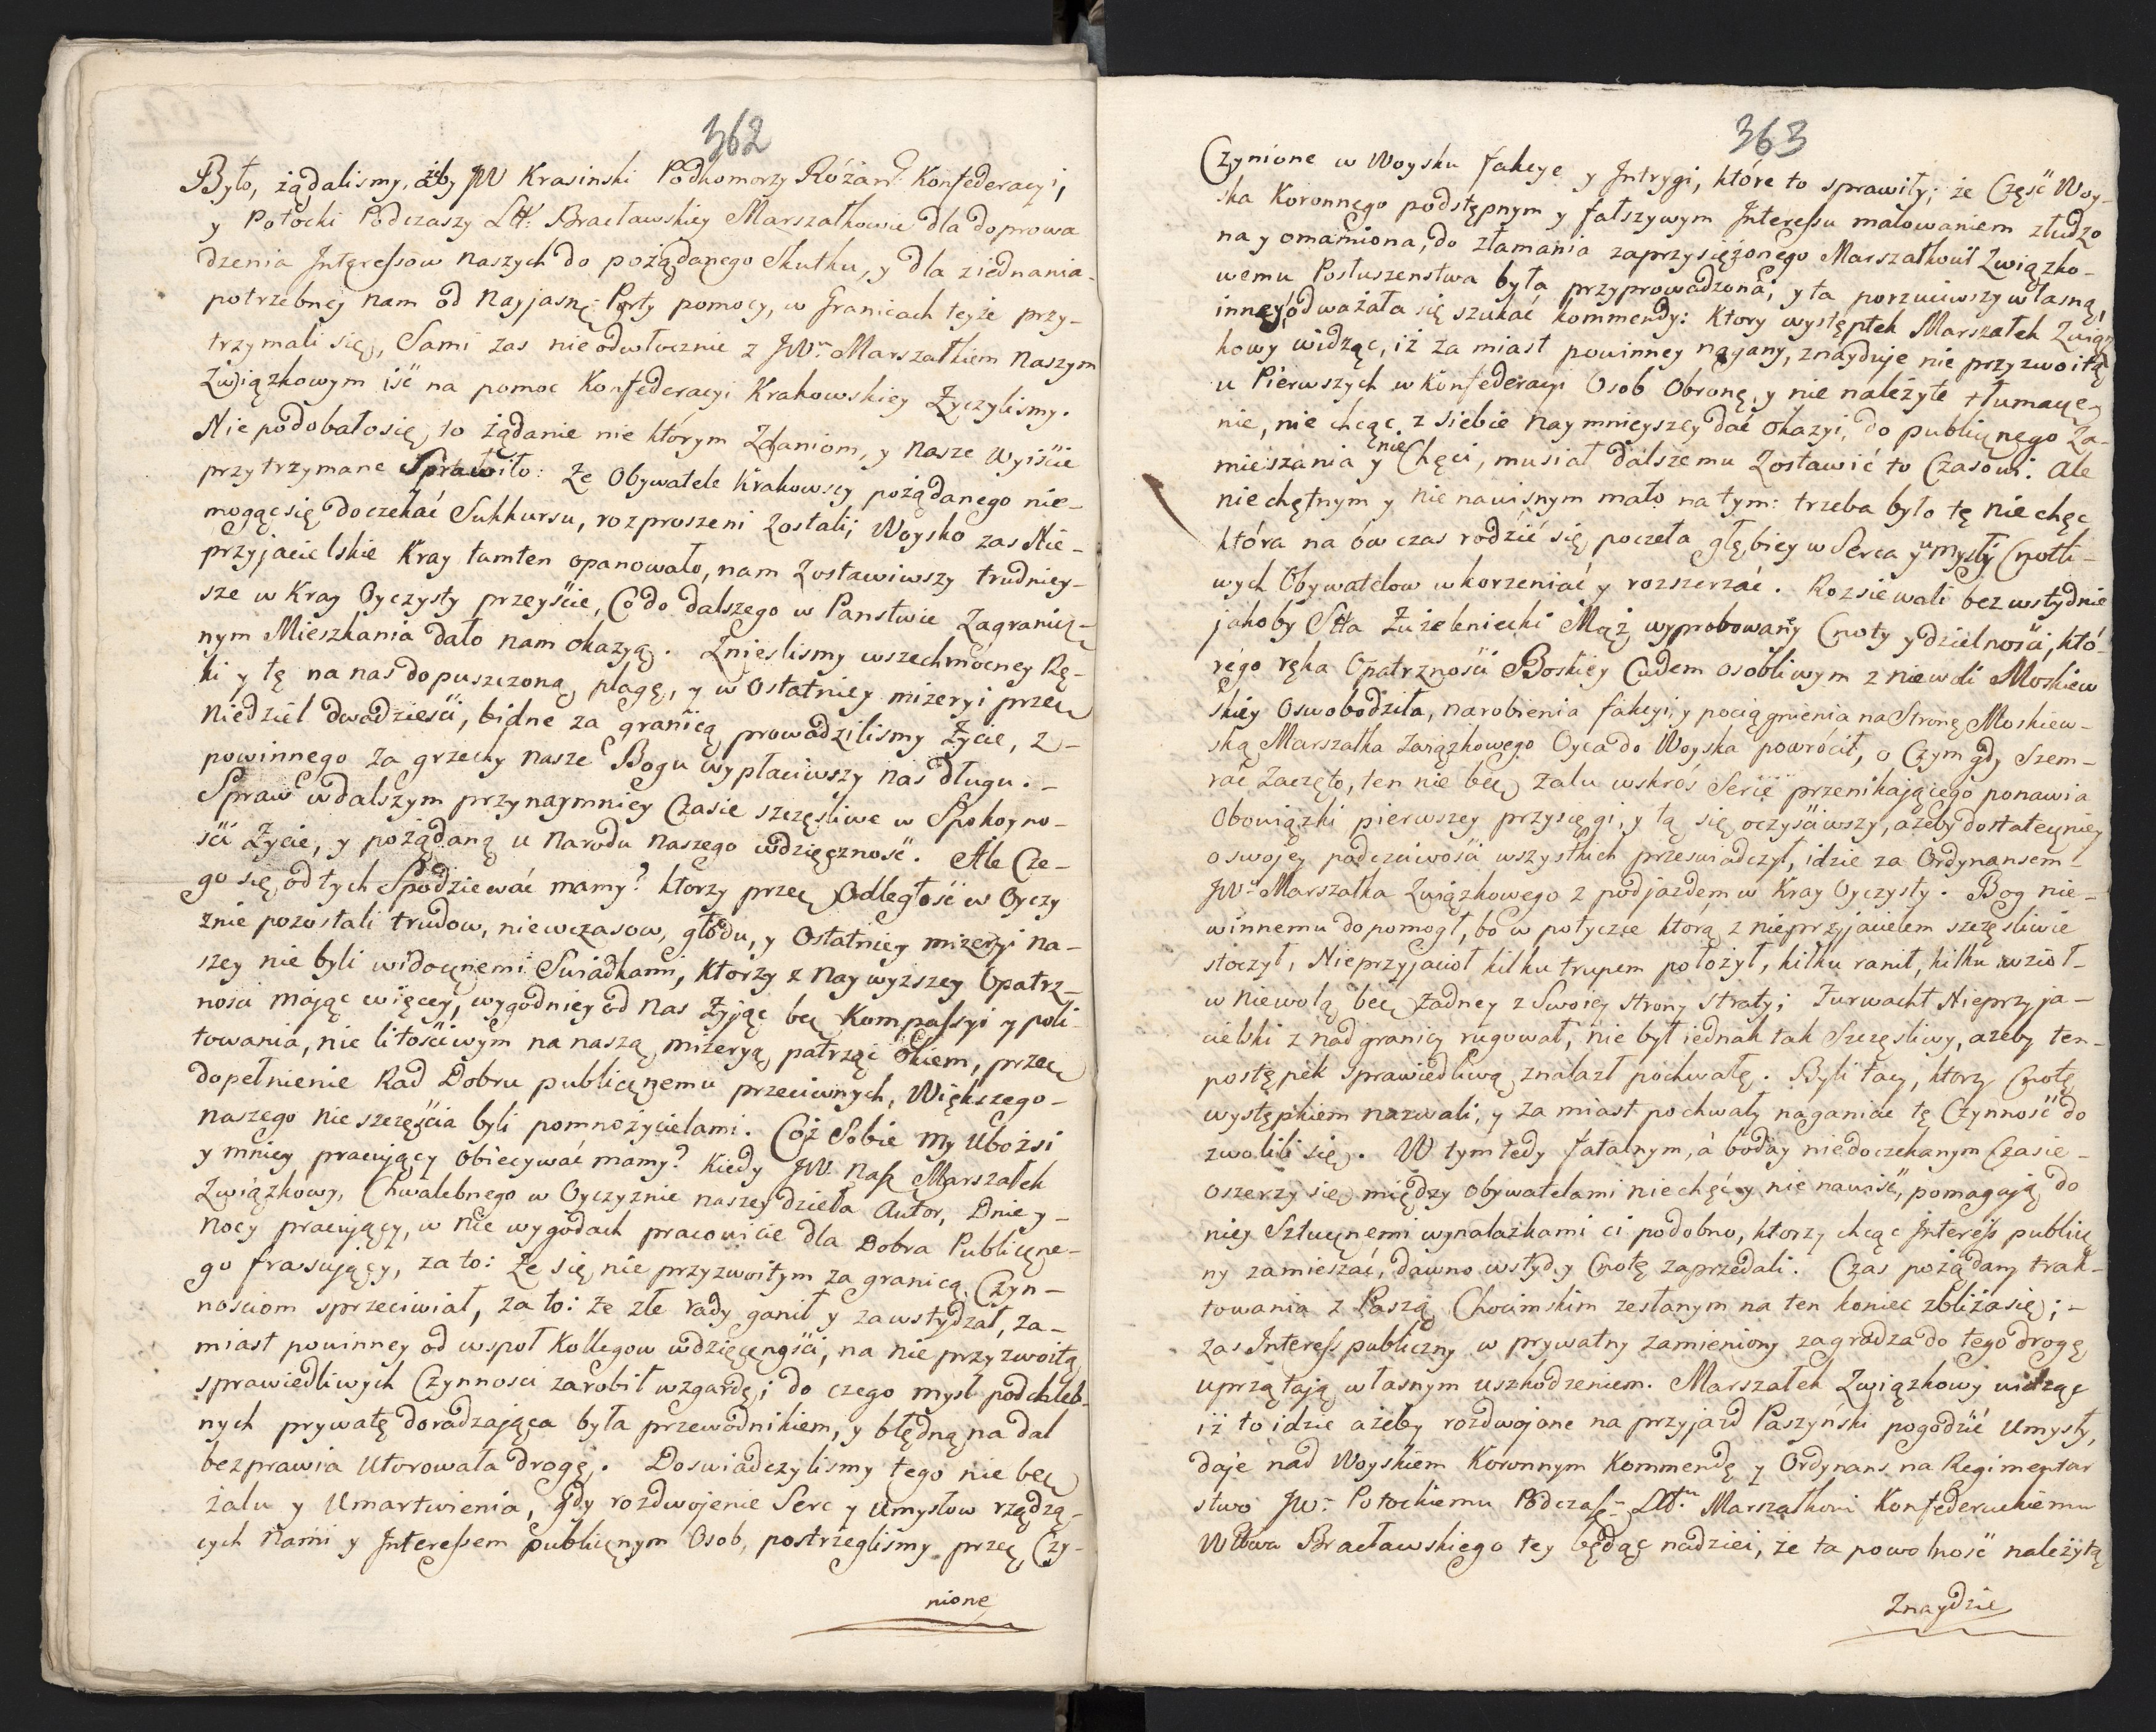 362
Było, żądalismy, ażeby JW Krasinski Podkomorzy Różan: Konfederacyi,
y Potocki Podczaszy Litt: Bracławskiey Marszałkowie dla doprowa
dzenia Interessow Naszych do pożądanego Skutku, y dla ziednania
potrzebney nam od Nayjasn: Porty pomocy, w Granicach teyże przy-
trzymali się, Sami zas nieodwłocznie z JWm Marszałkiem Naszym
Związkowym iść na pomoc Konfederacyi Krakowskiey Życzylismy.
Nie podobało się to żądanie nie którym Zdaniom, y Nasze Wyiście
przytrzymane Sprawiło: Że Obywatele Krakowscy pożądanego nie-
mogąc się doczekać Sukkursu, rozproszeni zostali; Woysko zas Nie-
przyjacielskie Kray tamten opanowało, nam Zostawiwszy trudniey-
sze w Kray Oyczysty przeyście, Co do dalszego w Panstwie Zagranicz-
nym Mieszkania dało nam okazyą. Zniesliśmy wszechmocney Rę-
ki y tę na nas dopuszczoną plagę, y w Ostatniey mizeryi przez
Niedziel dwadzieścia, bidne za granicą prowadzilismy Życie, z-
powinnego za grzechy nasze Bogu wypłaciwszy nas długu. -
Spraw w dalszym przynaymniey Czasie szczęśliwe w Spokoyno-
ści Życie, y pożądaną u Narodu Naszego wdzięczność. Ale Cze-
go się od tych Spodziewać mamy? ktorzy przez Odległość w Oyczy
znie pozostali trudow, niewczasow, głodu, y Ostatniey mizeryi na-
szey nie byli widocznemi Swiadkami, Ktorzy z Naywyzszey Opatrz-
nosci mając więcey, wygodniey od Nas Żyjąc bez Kompassyi y poli-
towania, nie litościwym na naszą mizeryą patrząc okiem, przez
dopełnienie Rad Dobru publicznemu przeciwnych, Większego-
naszego nieszczęścia byli pomnożycielami. Coż Sobie My Ubożsi
y mniey pracujący Obiecywać mamy? Kiedy JW. Nasz Marszałek
Związkowy, Chwalebnego w Oyczyznie naszey dzieła Autor, Dnie y-
Nocy pracujący, w nie wygodach pracowicie dla Dobra Publiczne-
go frasujący, za to: Że się nie przyzwoitym za granicą Czyn-
nościom sprzeciwiał, za to: że złe rady ganił y zawstydzał, za-
miast powinney od wspoł Kollegow wdzięczności, na nie przyzwoitą
sprawiedliwych Czynnosci zarobił wzgardę; do czego mysl podchleb-
nych prywatę doradzająca była przewodnikiem, y błędną na dal
bezprawia Utorowała drogę. Doswiadczylismy tego nie bez
żalu y Umartwienia, gdy rozdwojenie Serc y Umysłow rządzą-
cych Nami y Interessem publicznym Osob, postrzeglismy przez Czy-
nione
363
Czynione w Woysku fakcye y Intrygi, które to sprawiły; że Część Woy-
ska Koronnego podstępnym y fałszywym Interessu malowaniem złudzo
na y omamiona, do złamania zaprzysiężonego Marszałkowi Związko-
wemu Posłuszenstwa była przyprowadzona; y ta porzuciwszy własną,
inney odważała się szukać kommendy: Ktory występek Marszałek Związ
kowy widząc, iż za miast powinney nagany, znayduje nie przyzwoitą
u Pierwszych w Konfederacyi Osob Obronę, y nie należyte tłumacze-
nie, nie chcąc z siebie naymnieyszey dać okazyi, do publicznego Za-
mieszania y nie Chęci, musiał dalszemu Zostawić to Czasowi: Ale
niechętnym y nienawisnym mało na tym: trzeba było tę niechęć
która na ów czas rodzić się poczeła głębiey w Serca y umysły Cnotli-
wych Obywatelow wkorzeniać y rozszerzać. Rozsiewali bezwstydnie
jakoby Stta Zużeleniecki Mąż wyprobowany Cnoty y dzielności, któ-
rego ręka Opatrzności Boskiey Cudem osobliwym z niewoli Moskiew
skiey Oswobodziła, narobienia fakcyi, y pociągnienia na Stronę Moskiew-
ską Marszałka Związkowego Oyca do Woyska powrócił, o Czym gdy Szem-
rać Zaczęto, ten nie bez żalu wskroś Serce przenikającego ponawia
Obowiązki pierwszey przysięgi, y tą się oczyściwszy, ażeby dostateczniey
o swojey podcziwości wszystkich przeswiadczył, idzie za Ordynansem
JWo Marszałka Związkowego z podjazdem w Kray Oyczysty. Bog nie-
winnemu dopomogł, bo w potyczce którą z nieprzyjacielem szczęsliwie
stoczył, Nieprzyjacioł kilku trupem położył, kilku ranił, kilku wzioł-
w niewolą bez żadney z Swoiey strony straty; Furwacht Nieprzyja-
cielski z nad granicy rugował, nie był iednak tak Szczęsliwy, ażeby ten-
postępek Sprawiedliwą znalazł pochwałę. Byli tacy, ktorzy Cnotę
występkiem nazwali, y za miast pochwały naganiac tę Czynność do
zwolili się. W tym tedy fatalnym, á boday niedoczekanym Czasie-
oszerzy się między Obywatelami niechęć y nienawiść, pomagają do
niey Sztucznemi wynalazkami ci podobno, ktorzy chcąc Interess public
ny zamieszać, dawno wstyd y Cnotę zaprzedali. Czas pożądany trak-
towania z Paszą Chocimskim zesłanym na ten koniec zbliża się; -
zas Interess publiczny w prywatny zamieniony zagradza do tego drogę
uprzątają własnym uszkodzeniem. Marszałek Związkowy widząc
iż to idzie ażeby rozdwojone na przyjazd Paszyński pogodzić Umysły,
daje nad Woyskiem Koronnym Kommendę y Ordynans na Regimentar
stwo JW: Potockiemu Podczasz: Litt: Marszałkowi Konfederackiemu
Wttwa Bracławskiego tey będąc nadziei, że ta powolność należytą
Znaydzie